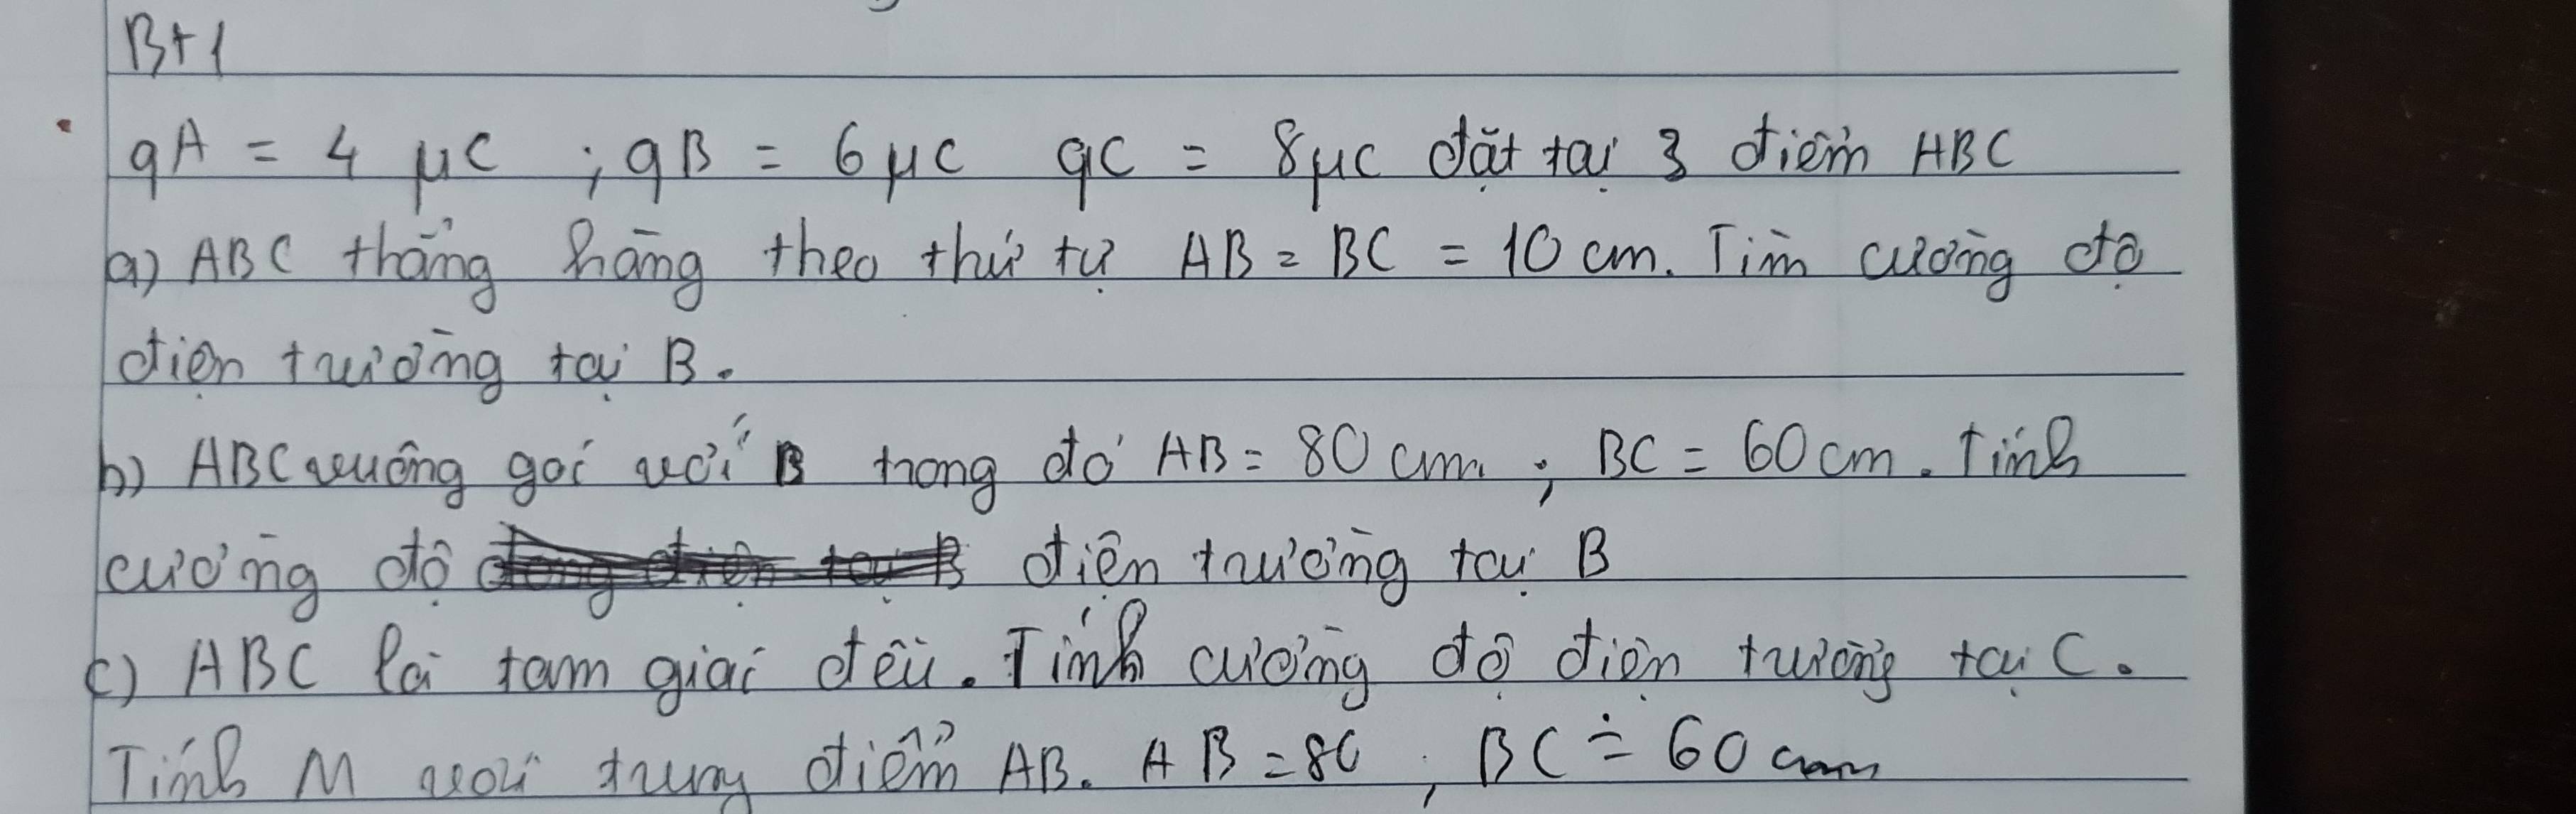 Bt1
qA = 4 μC ; qB = 6 μC qC = 8μC đặt tại 3 điểm ABC
a) ABC thẳng hàng theo thứ tự AB = BC = 10 cm. Tìm cường độ
điện trường tại B.
b) ABC vuông góc với B trong đó AB = 80 cm ; BC = 60 cm. Tính
cường độ điện trường tại B
c) ABC là tam giác đều. Tính cường độ điện trường tại C.
Tính M với trung điểm AB. AB = 80 ; BC = 60 cm